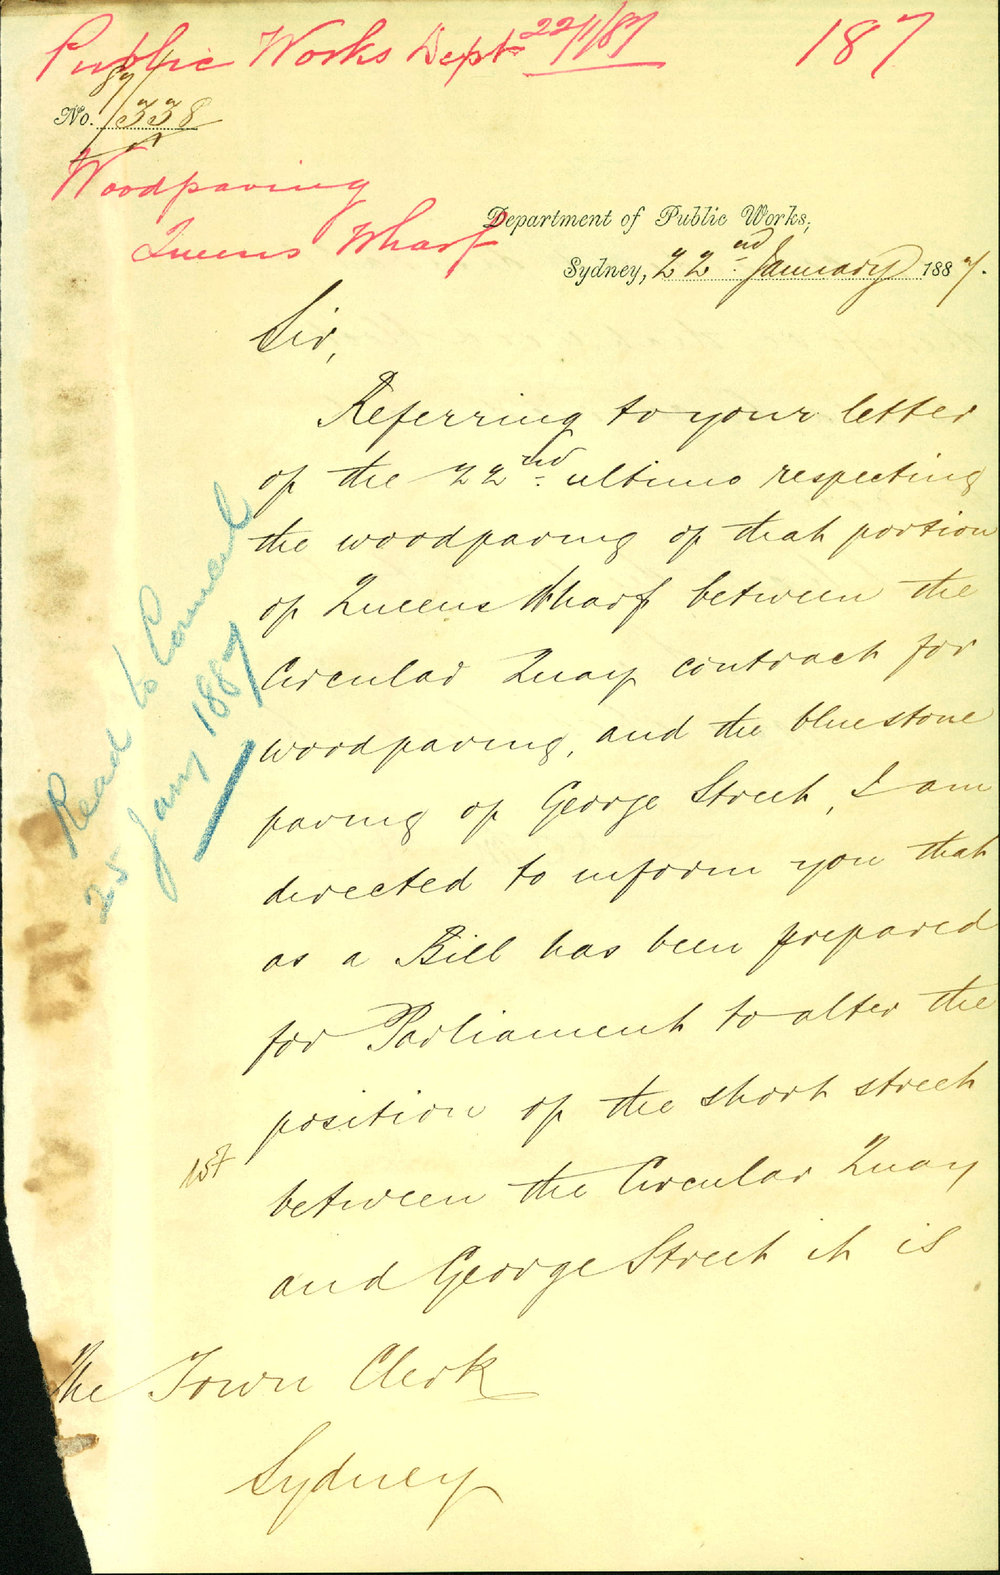 Public Works Dept 22/1/87
187
No. 87/338
Woodpaving
Queens Wharf
Department of Public Works,
Sydney, 22nd January 1887.
Sir,
Referring to your letter
of the 22nd ultimo respecting
the woodpaving of that portion
of Queens Wharf between the
Circular Quay contract for
woodpaving, and the bluestone
paving of George Street, I am
directed to inform you that
as a Bill has been prepared
for Parliament to alter the
position of the short street
between the Circular Quay
and George Street it is
Read to Council
25 Jany 1887
The Town Clerk
Sydney